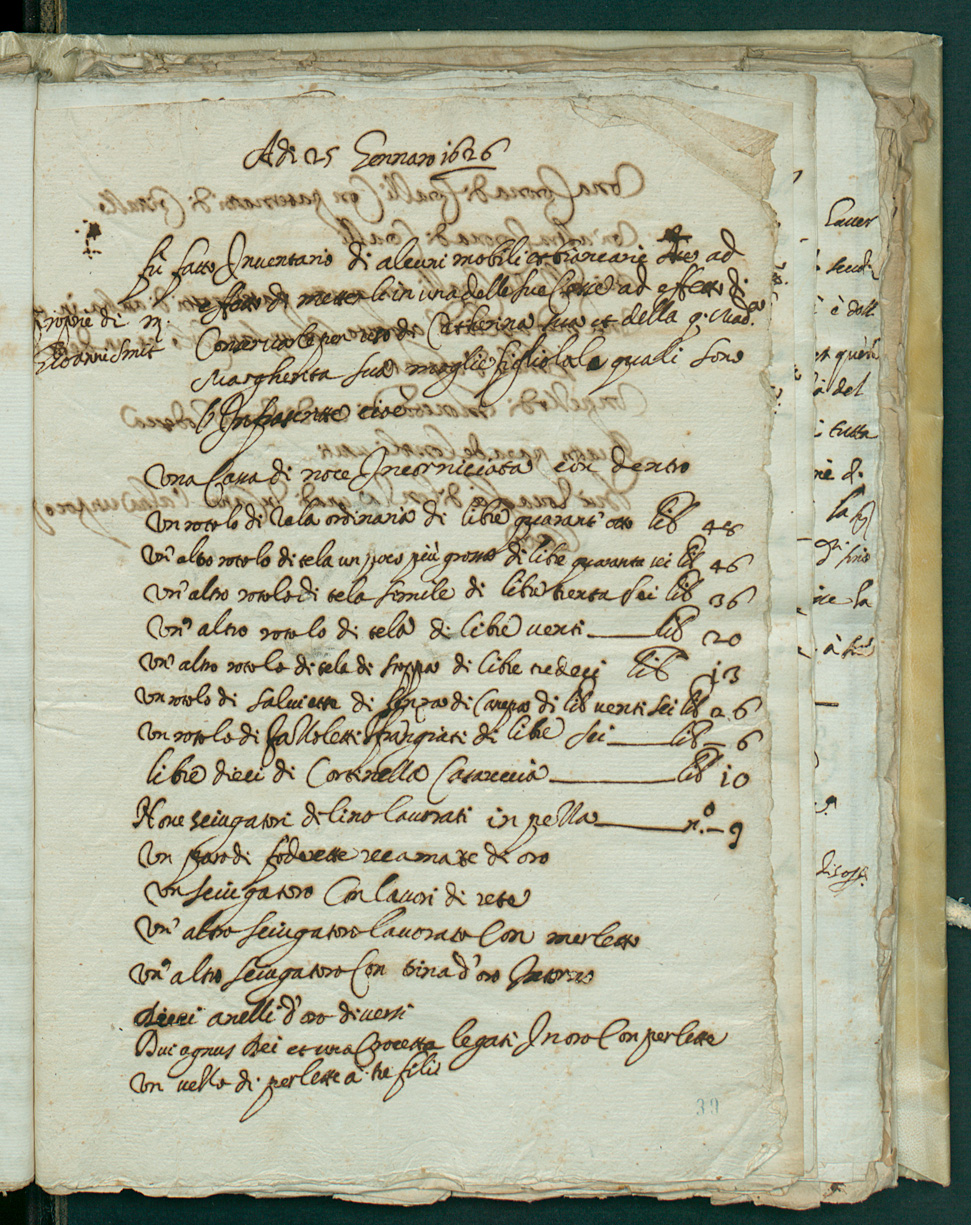 Adi 25 Gennaro 1626
fù fatto Inventario di alcuni mobili et biancarie ad
effetto di metterle in una delle sue Casse ad effetto di
Conservarle per uso di Catherina sua et della q. Mad.a
Margherita sua moglie figliola le quali sono
l'Infrascritte cioè
proprie di m.
Giovanni Smit
Una Cassa di noce Incorniciata con dentro
Un rotolo di tela ordinaria di libre quarant'otto lib 48
Un'altro rotolo di tela un poco più grossa di libre quaranta sei lib 46
Un'altro rotolo di tela simile di libre trenta sei lib 36
Un'altro rotolo di tela di libre venti lib 20
Un'altro rotolo di tela di stoppa di libre tredeci lib 13
Un rotolo di salviette di di Canepa di lib venti sei lib 26
Un rotolo di fazzoletti sfrangiati di libre sei lib 6
libre dieci di Cortinella Casareccia lib 10
Nove sciugatori di lino lavorati in pezza n.o 9
Un paro di foderette reccamate di oro
Un sciugatoro Con lavori di rete
Un'altro sciugatoro lavorato Con merletto
Un'altro sciugatoro Con trina d'oro Intorno
dieci anelli d'oro diversi
Dui agnus dei et una Crocetta legati In oro Con perlette
Un vezzo di perlette a tre filis
39